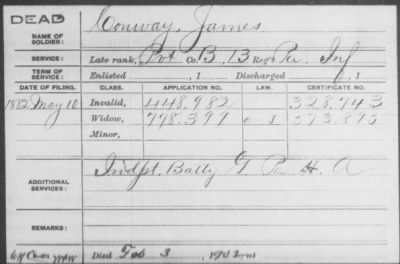 DEAD
NAME OF SOLDIER: Conway, James
SERVICE: Late rank, Pvt Co. B, 13 Reg't Pa. Inf
TERM OF SERVICE: Enlisted , 1 Discharged , 1
DATE OF FILING. CLASS. APPLICATION NO. LAW. CERTIFICATE NO.
1882 May 10 Invalid, 448.982 328.743
Widow, 778.397 573.895
Minor,
ADDITIONAL SERVICES: Indpt. Batty G Pa H. A
REMARKS:
Died Feb 3